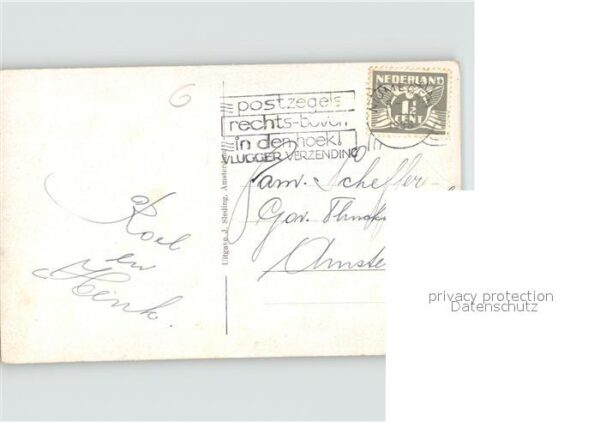 6
postzegels
rechts-boven
in den hoek!
VLUGGER VERZENDING
NEDERLAND
1½
CENT
Uitgave J. Sleding, Amsterdam
Roel
en
Henk.
Fam. Scheffer
Gov.
Amste
privacy protection
Datenschutz